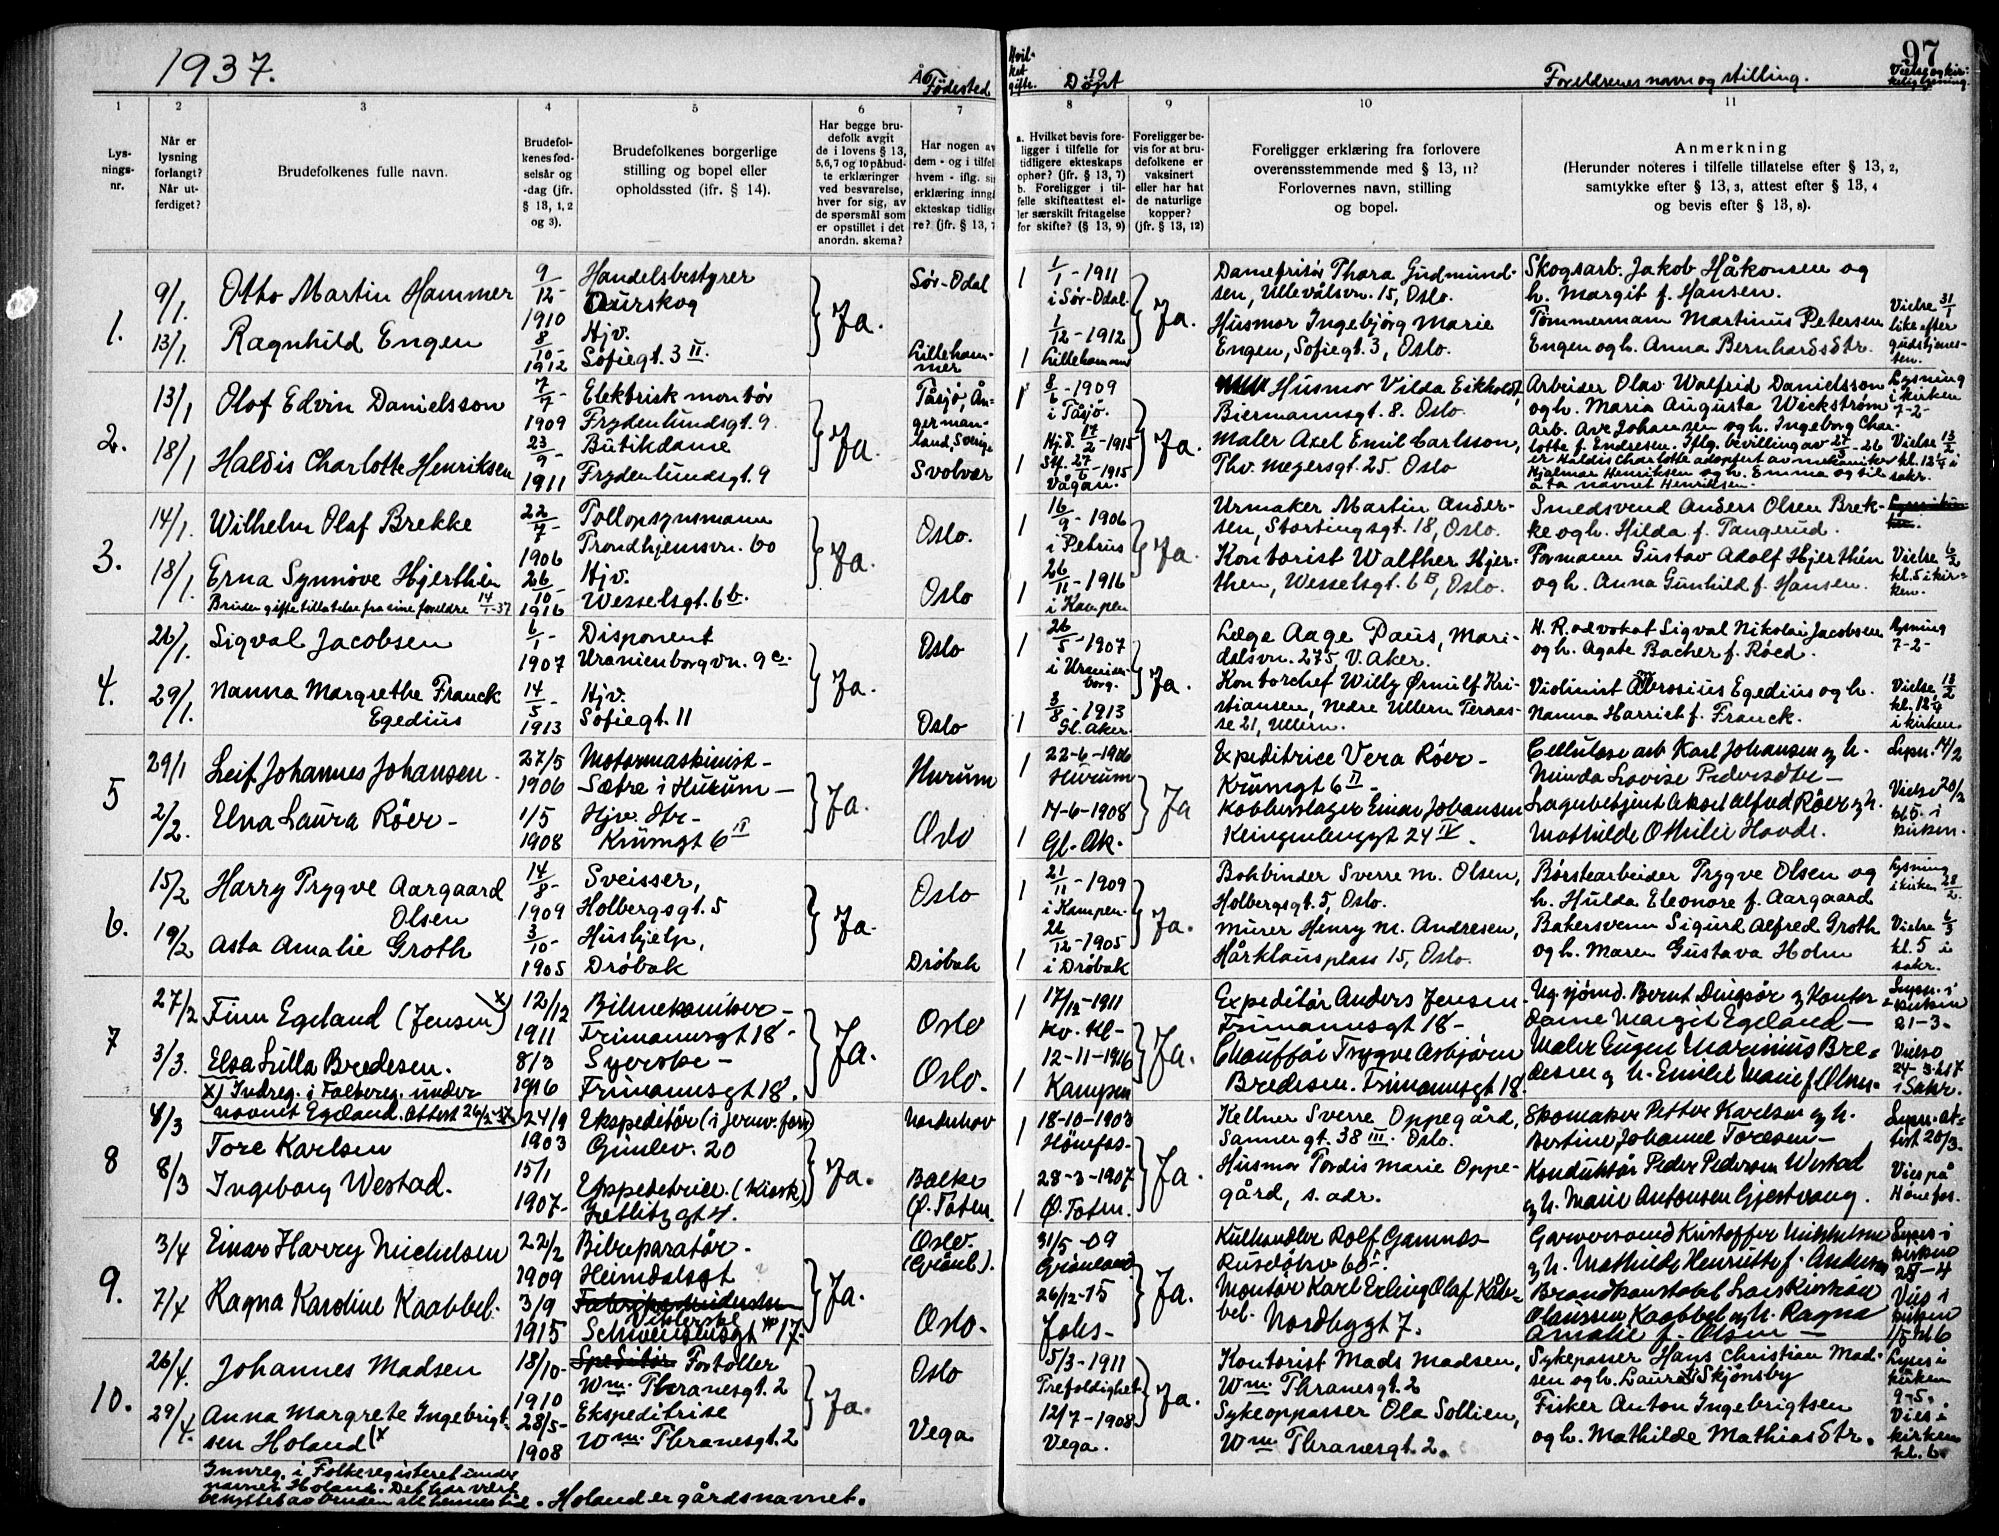 1937.
Fødested
Hvil-
ket
gifte.
Døpt
Foreldrenes navn og stilling.
97
Vielse og kir-
kelig lysning.
1
Lys-
nings-
nr.
2
Når er
lysning
forlangt?
Når ut-
ferdiget?
3
Brudefolkenes fulle navn.
4
Brudefol-
kenes fød-
selsår og
-dag (jfr.
§ 13, 1, 2
og 3).
5
Brudefolkenes borgerlige
stilling og bopel eller
opholdssted (ifr. § 14).
6
Har begge bru-
defolk avgit
de i lovens § 13,
5,6,7 og 10 påbud-
te erklæringer
ved besvarelse,
hver for sig, av
de spørsmål som
er opstillet i det
anordn. skema?
7
Har nogen av
dem - og i tilfel
hvem - iflg. sin
erklæring inngå
ekteskap tidlige
re? (jfr. § 13, 7
8
a. Hvilket bevis fore-
ligger i tilfelle for
tidligere ekteskaps
ophør? (jfr. § 13, 7)
b. Foreligger i til-
felle skifteattest el-
ler særskilt fritagelse
for skifte? (§ 13, 9)
9
Foreligger be-
vis for at bru-
defolkene er
vaksinert
eller har hat
de naturlige
kopper?
(jfr. § 13, 12)
10
Foreligger erklæring fra forlovere
overensstemmende med § 13, 11?
Forlovernes navn, stilling
og bopel.
11
Anmerkning
(Herunder noteres i tilfelle tillatelse efter § 13, 2,
samtykke efter § 13, 3, attest efter § 13, 4
og bevis efter § 13, 8).
1.
9/1
13/1.
Otto Martin Hammer
Ragnhild Engen
9/12-
1910
8/10-
1912
Handelsbestyrer
Aurskog
Hjv.
Sofiegt. 3 II.
Ja.
Sør-Odal
Lilleham-
mer
1
1
1/1 - 1911
i Sør-Odal.
1/12 - 1912
Lillehammer
Ja.
Damefrisør Thora Gudmund-
sen, Ullevålsvn. 15, Oslo.
Husmor Ingebjørg Marie
Engen, Sofiegt. 3, Oslo.
Skogsarb. Jakob Håkonsen og
h. Margit f. Hansen.
Tømmermann Martinus Petersen
Engen og h. Anna Bernhardsdtr.
Vielse 31/1
like efter
gudstjenes-
ten.
2.
13/1
18/1
Olof Edvin Danielsson
Haldis Charlotte Henriksen
7/7
1909
23/9
1911
Elektrisk montør
Frydenlundsgt. 9.
Butikdame
Frydenlundsgt. 9
Ja.
Tåsjø, Ån-
german-
land, Sverige
Svolvær
1
1
8/6 - 1909
i Tåsjø.
Hjd. 17/2 - 1915
Stf. 27/6 - 1915
Vågan.
Ja.
Husmor Vilda Eikholdt,
Biermannsgt. 8. Oslo.
Maler Axel Emil Carlsson,
Thv. Meyersgt. 25. Oslo
Arbeider Olav Walfrid Danielsson
og h. Maria Augusta Wickstrøm
Arb. Ave Johansen og h. Ingeborg Char-
lotte f. Endresen. Iflg. bevilling av 27/3-26
er Haldis Charlotte adoptert av mekaniker
Hjalmar Henriksen og h. Emma og til
å ta navnet Henriksen.
Lysning
i kirken
7-2-
Vielse 13/2
kl. 12 1/4 i
sakr.
3.
14/1.
18/1.
Wilhelm Olaf Brekke
Erna Synnøve Hjerthén
Bruden gifte tillatelse fra sine foreldre 14/1-37
22/7
1906
26/10
1916
Tollopsynsmann
Trondhjemsvn. 60
Hjv.
Wesselsgt. 6 b.
Ja.
Oslo.
Oslo
1
1
16/9 - 1906
i Petrus
26/11 - 1916
i Kampen
Ja.
Urmaker Martin Ander-
sen, Stortingsgt. 18, Oslo.
Kontorist Walther Hjer-
then, Wesselsgt. 6 B, Oslo.
Smedsvend Anders Olsen Brek-
ke og h. Hilda f. Tangerud.
Formann Gustav Adolf Hjerthén
og h. Anna Gunhild f. Hansen.
Vielse 6/2
kl. 5 i kir-
ken.
4.
26/1.
29/1.
Sigval Jacobsen
Nanna Margrethe Franck
Egedius
6/1
1907
14/5
1913
Disponent
Uranienborgvn. 9 c.
Hjv.
Sofiegt. 11
Ja.
Oslo
Oslo
1
1
26/5 - 1907
i Uranien-
borg.
3/8 - 1913
Gl. Aker
Ja.
Læge Aage Paus, Mari-
dalsvn. 275, V. Aker.
Kontorchef Willy Ørnulf Kri-
stiansen, Nedre Ullern Terras-
se 21, Ullern.
H. R. advokat Sigval Nikolai Jacobsen
og h. Agate Bacher f. Røed.
Violinist Ambrosius Egedius og h.
Nanna Harriet f. Franck.
Lysning
7-2-
Vielse 13/2
kl. 12 1/4
i kirken.
5
29/1
2/2.
Leif Johannes Johansen.
Elna Laura Röer-
27/5
1906
1/5
1908
Motormaskinist-
Sætre i Hurum-
Hjv. Str-
Krumgt 6 II
Ja.
Hurum
Oslo
1
1
22-6-1906
Hurum
14-6-1908
Gl. Ak.
Ja
Expeditrice Vera Röer-
Krumgt 6 II-
Kobberslager Einar Johansen
Klingenberggt 24 IV.
Cellulose arb Karl Johansen og h.
Minda Lovise Pedersdtr-
Lagerbetjent Aksel Alfred Röer og h.
Mathilde Othilie Hovde.
Lysn. 14/2
Vielse 20/2
kl 5. i
kirken.
6.
15/2
19/2
Harry Trygve Aargaard
Olsen
Asta Amalie Groth
14/8-
1909
3/10-
1905
Sveisser,
Holbergsgt. 5
Hushjelp,
Drøbak
Ja.
Oslo
Drøbak
1
1
21/11 - 1909
i Kampen.
22/12 - 1905
i Drøbak
Ja.
Bokbinder Sverre M. Olsen,
Holbergsgt. 5, Oslo.
Murer Henry M. Andresen,
Hårklausplass 15, Oslo.
Børstearbeider Trygve Olsen og
h. Hulda Eleonore f. Aargaard
Bakersvenn Sigurd Alfred Groth
og h. Maren Gustava Holm
Lysning
i kirken 28/2.
Vielse 6/3
kl. 5 i
sakr.
7
27/2
3/3.
Finn Egeland (Jensen) x)
Elsa Lilla Bredesen.
x) Indreg. i Folkereg. under
navnet Egeland. Attest 26/2-37
12/12
1911
8/3
1916
Bilmekaniker-
Frimannsgt 18-
Syerske-
Frimannsgt 18.
Ja.
Oslo
Oslo.
1
1
17/12-1911
Kv. Kl-
12-11-1916
Kampen
Ja.
Expeditør Anders Jensen-
Frimannsgt 18-
Chauffør Trygve Asbjørn
Bredesen. Frimannsgt 18.
Ug. sjömd. Bernt Dingsör og Kontor-
dame Margit Egeland-
Maler Eugen Marinius Bre-
desen og h. Emilie Marie f. Olsen-
Lysn. i
kirken
21-3-
Vielse
24-3. kl 7
i Sakr.
8
4/3
8/3
Tore Karlsen
Ingeborg Westad.
24/9
1903
15/1
1907-
Ekspeditör (i jernv. forr)
Gimlev. 20
Expeditrice. (Kiosk)
Zetlitzgt 4.
Ja.
Norderhov
Balke
Ø. Toten.
1
1
18-10-1903
Hönefos-
28-3-1907
Ø. Toten.
Ja.
Kellner Sverre Oppegård,
Sannergt. 38 III. Oslo.
Husmor Tordis Marie Oppe-
gård, s. adr.
Skomaker Petter Karlsen og h.
Bertine Johanne Toresen-
Konduktör Peder Pedersen Westad
og h. Marie Antonsen Gjestvang.
Lysn. at-
test 20/3.
Vies på
Hönefos.
9.
3/4
7/4
Einar Harry Michelsen
Ragna Karoline Kaabbel.
22/2
1909
3/9
1915
Bilreparatör.
Heimdalsgt
Schweigaardsgt 17.
Ja.
Oslo.
(Grönl).
Oslo.
31/5-09
Grönland
26/12-15
Johs-
Ja.
Kulhandler Rolf Gamnes
Montör Karl Erling Olaf Kåb-
bel. Nordbygt 7.
Garversvend Kristoffer Michelsen
og h. Mathilde Henriette f. Andersen
Brandkonstabel Lars Kristian
Olaussen Kaabbel og h. Ragna
Amalie f. Olsen-
Lyses i
kirken
Vies i
kirken
1/5 kl 6
10.
26/4.
29/4.
Johannes Madsen
Anna Margrete Ingebrigt-
sen Holand (x
18/10-
1910
28/5-
1908
Speditør Fortoller
Wm. Thranesgt. 2
Ekspeditrise
Wm. Thranesgt. 2
Ja.
Oslo
Vega
5/3-1911
Trefoldighet
12/7-1908
Vega.
Ja.
Kontorist Mads Madsen,
Wm. Thranesgt. 2
Sykeoppasser Ola Sollien,
Wm. Thranesgt. 2.
Sykepasser Hans Christian Mad-
sen og h. Laura f. Skjønsby
Fisker Anton Ingebrigtsen
og h. Mathilde Mathiasdtr.
Lyses i
kirken
9-5.
Vies i
kirken
kl. 6.
Innreg. i Folkeregisteret under
navnet Holand. Det har vært
benyttet av bruden all hennes tid. Holand er gårdsnavnet.